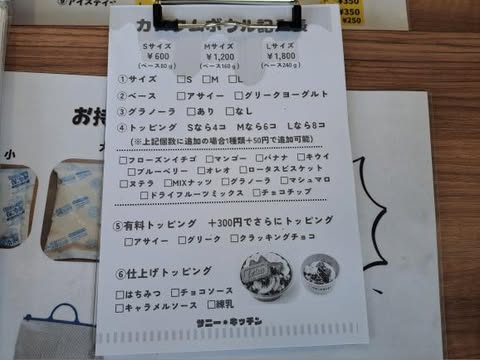 ⑨アイスティー
¥350
¥350
¥250
お持
小
Sサイズ Mサイズ Lサイズ
¥600 ¥1,200 ¥1,800
(ベース80g) (ベース160g) (ベース240g)
①サイズ □S □M □L
②ベース □アサイー □グリークヨーグルト
③グラノーラ □あり □なし
④トッピング Sなら4コ Mなら6コ Lなら8コ
(※上記個数に追加の場合1種類+50円で追加可能)
□フローズンイチゴ □マンゴー □バナナ □キウイ
□ブルーベリー □オレオ □ロータスビスケット
□ヌテラ □MIXナッツ □グラノーラ □マシュマロ
□ドライフルーツミックス □チョコチップ
⑤有料トッピング +300円でさらにトッピング
□アサイー □グリーク □クラッキングチョコ
⑥仕上げトッピング
□はちみつ □チョコソース
□キャラメルソース □練乳
サニー★キッチン